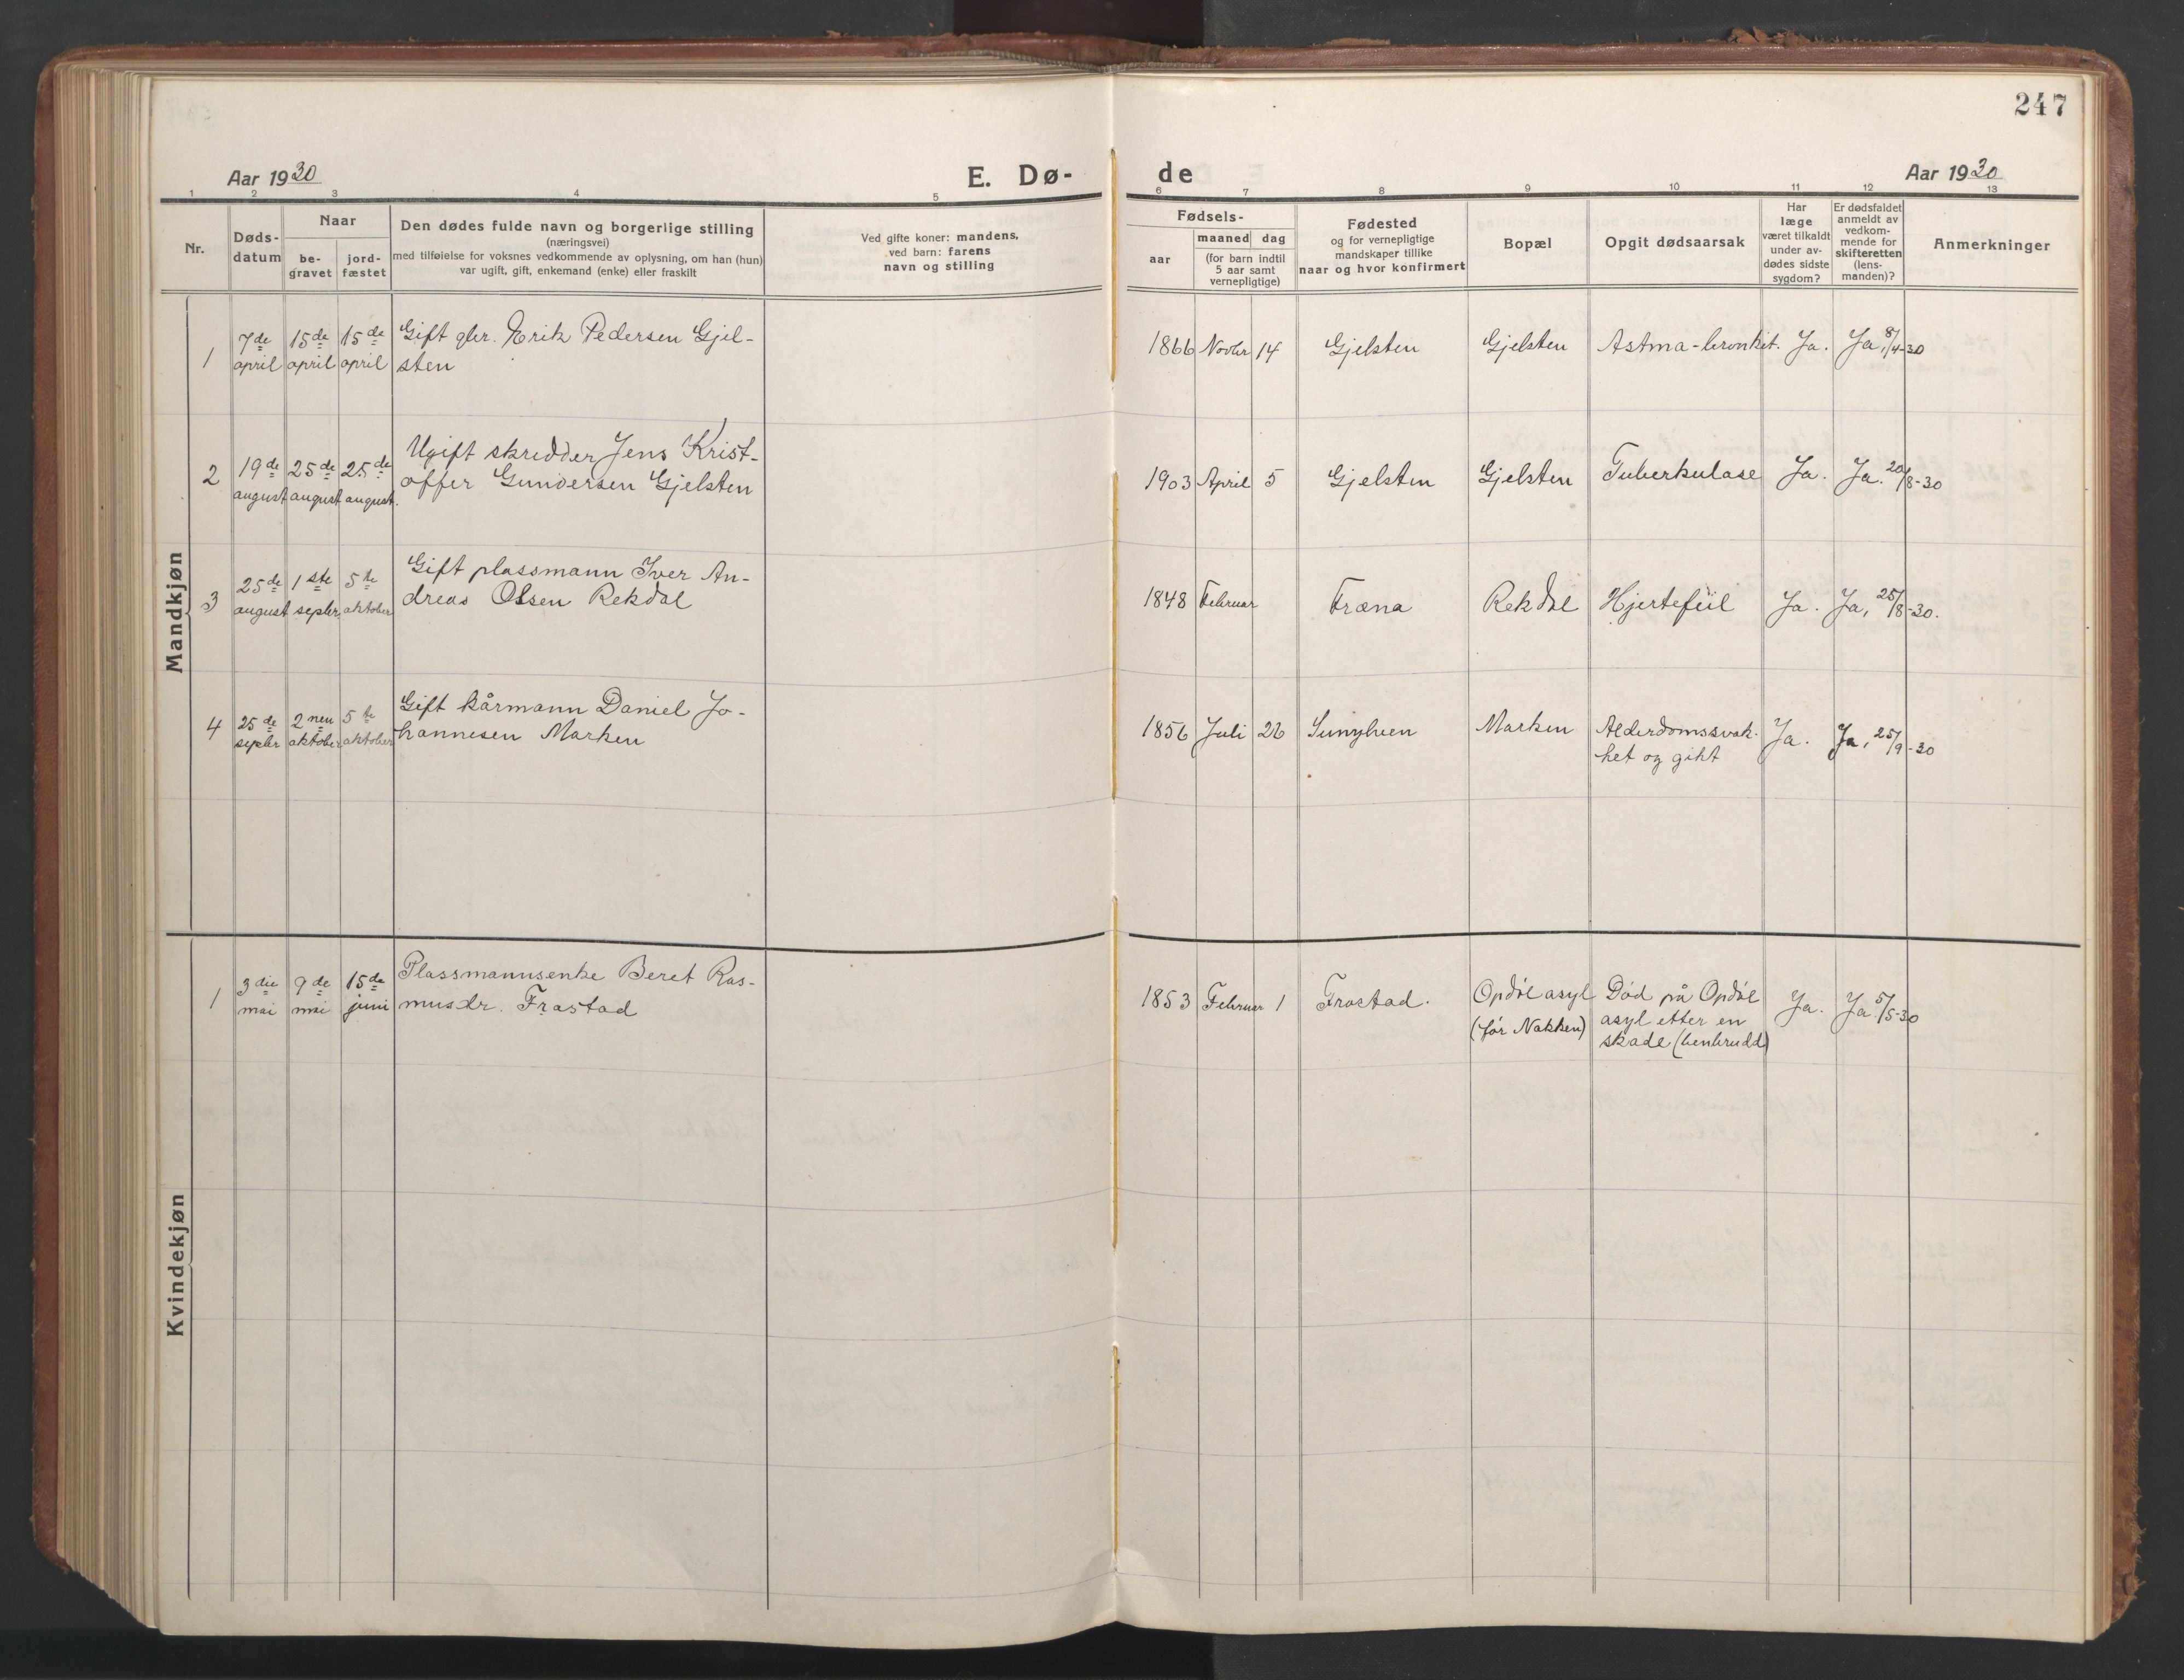 247
Aar 1930
E. Dø-
de
Aar 1930
1 2 3 4 5 6 7 8 9 10 11 12 13
Nr.
Døds-
datum
Naar
be-
gravet
jord-
fæstet
Den dødes fulde navn og borgerlige stilling
(næringsvei)
med tilføielse for voksnes vedkommende av oplysning, om han (hun)
var ugift, gift, enkemand (enke) eller fraskilt
Ved gifte koner: mandens,
ved barn: farens
navn og stilling
Fødsels-
aar
maaned dag
(for barn indtil
5 aar samt
vernepligtige)
Fødested
og for vernepligtige
mandskaper tillike
naar og hvor konfirmert
Bopæl
Opgit dødsaarsak
Har
læge
været tilkaldt
under av-
dødes sidste
sygdom?
Er dødsfaldet
anmeldt av
vedkom-
mende for
skifteretten
(lens-
manden)?
Anmerkninger
Mandkjøn
1
7de
april
15de
april
15de
april
Gift gbr. Erik Pedersen Gjel-
sten
1866 Novbr 14
Gjelsten
Gjelsten
Astma-bronkit.
Ja.
Ja, 8/4-30
2
19de
august
25de
august
25de
august.
Ugift skredder Jens Krist-
offer Gundersen Gjelsten
1903 April 5
Gjelsten
Gjelsten
Tuberkulose
Ja.
Ja. 20/8-30
3
25de
august
1ste
septbr.
5te
oktober
Gift plassmann Iver An-
dreas Olsen Rekdal
1848 Februar
Fræna
Rekdal
Hjertefeil
Ja.
Ja, 25/8-30.
4
25de
septbr
2nen
oktober
5te
oktober
Gift kårmann Daniel Jo-
hannesen Marken
1856 Juli 22
Sunylven
Marken
Alderdomssvak-
het og gikt
Ja.
Ja, 25/9-30
Kvindekjøn
1
3die
mai
9de
mai
15de
juni
Plassmannsenke Beret Ras-
musdr. Frostad
1853 Februar 1
Frostad.
Opdøl asyl
(før Nakken)
Død på Opdøl
asyl etter en
skade (benbrudd)
Ja.
Ja. 5/5-30